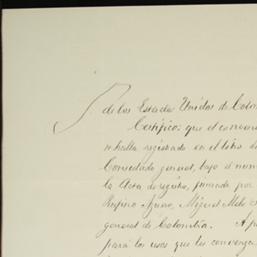 de los Estados Unidos de Colom
Certifico: que el
se halla registrado en el libro de
Consulado general, bajo el num
la Acta de registro, firmada por
Rufino Miguel Melo
general de Colombia. A p
para los usos que les convenga